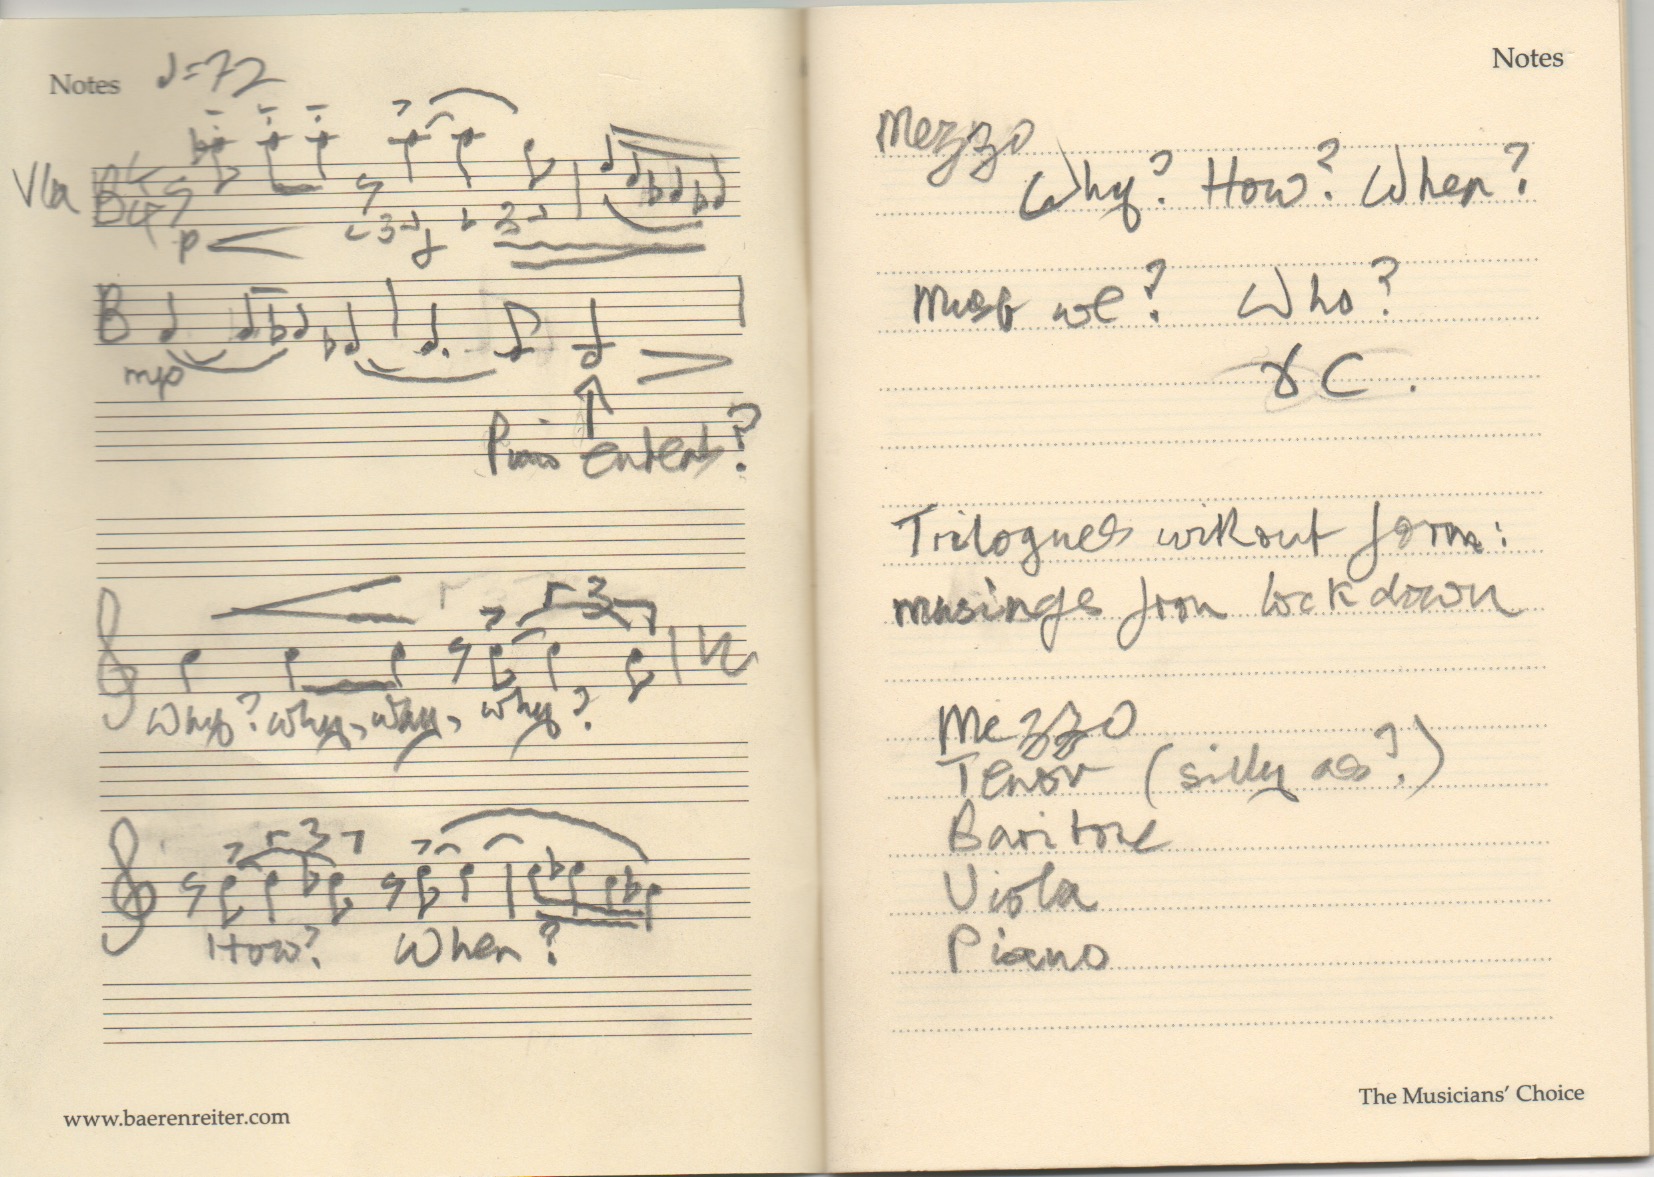 Notes ♩=72
Vla
p 3 f 3
mp
Piano enters?
3
Why? why, why, why?
3
How? When?
www.baerenreiter.com
Notes
Mezzo
Why? How? When?
Must we? Who?
&c.
Trilogues without form:
musings from lockdown
Mezzo
Tenor (silly as?)
Baritone
Viola
Piano
The Musicians' Choice